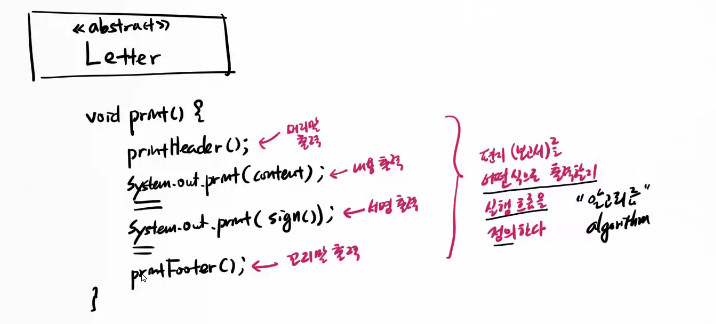 ≪abstract≫
Letter
void print() {
printHeader(); ← 머리말 출력
System.out.print(content); ← 내용 출력
System.out.print(sign()); ← 서명 출력
printFooter(); ← 꼬리말 출력
}
편지(보고서)를
어떤 식으로 출력할지
실행 흐름을 "알고리즘"
정의한다 algorithm